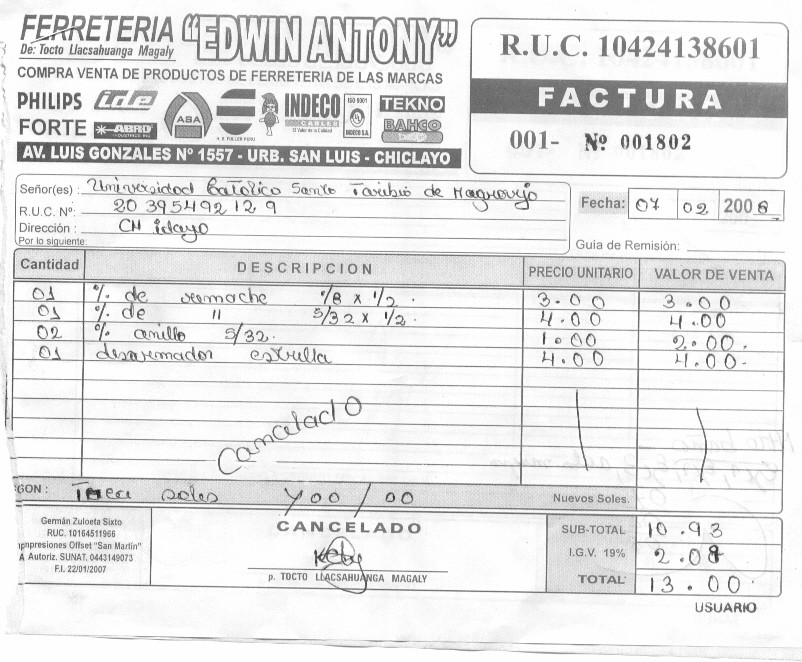 FERRETERIA "EDWIN ANTONY"
De: Tocto Llacsahuanga Magaly
COMPRA VENTA DE PRODUCTOS DE FERRETERIA DE LAS MARCAS
PHILIPS ide ASA H. B. FULLER PERU INDECO CABLES El Valor de la Calidad ISO 9001 INDECO S.A. TEKNO
FORTE ABRO BAHCO
AV. LUIS GONZALES Nº 1557 - URB. SAN LUIS - CHICLAYO
R.U.C. 10424138601
FACTURA
001- Nº 001802
Señor(es) : Universidad Catolico Santo Toribio de Mogrovejo
R.U.C. Nº: 20395492129
Dirección : CH iclayo
Por lo siguiente:
Fecha: 07 02 2008
Guía de Remisión:
Cantidad DESCRIPCION PRECIO UNITARIO VALOR DE VENTA
01 % de remache 1/8 x 1/2. 3.00 3.00
01 % de " 5/32 x 1/2. 4.00 4.00
02 % anillo 5/32. 1.00 2.00.
01 desarmador estrella 4.00 4.00-
Cancelado
GON : Trece soles y 00/00 Nuevos Soles.
Germán Zuloeta Sixto
RUC. 10164511966
mpresiones Offset "San Martín"
A Autoriz. SUNAT. 0443149073
F.I. 22/01/2007
CANCELADO
p. TOCTO LLACSAHUANGA MAGALY
SUB-TOTAL 10.93
I.G.V. 19% 2.07
TOTAL 13.00
USUARIO